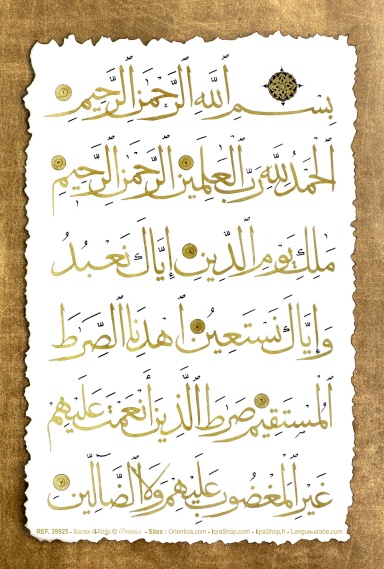 بِسْمِ ٱللَّهِ ٱلرَّحْمَٰنِ ٱلرَّحِيمِ ١
ٱلْحَمْدُ لِلَّهِ رَبِّ ٱلْعَٰلَمِينَ ٢ ٱلرَّحْمَٰنِ ٱلرَّحِيمِ ٣
مَٰلِكِ يَوْمِ ٱلدِّينِ ٤ إِيَّاكَ نَعْبُدُ
وَإِيَّاكَ نَسْتَعِينُ ٥ ٱهْدِنَا ٱلصِّرَٰطَ
ٱلْمُسْتَقِيمَ ٦ صِرَٰطَ ٱلَّذِينَ أَنْعَمْتَ عَلَيْهِمْ
غَيْرِ ٱلْمَغْضُوبِ عَلَيْهِمْ وَلَا ٱلضَّآلِّينَ ٧
REF. 39925 - Sourate Al-Fâtiha © - Sites : Orientica.com - IqraShop.com - IqraShop.fr - Langue-arabe.com